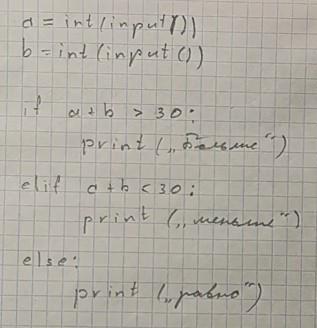 a = int(input())
b = int(input())
if a + b > 30:
print („Больше“)
elif a + b < 30:
print („меньше“)
else:
print („равно“)